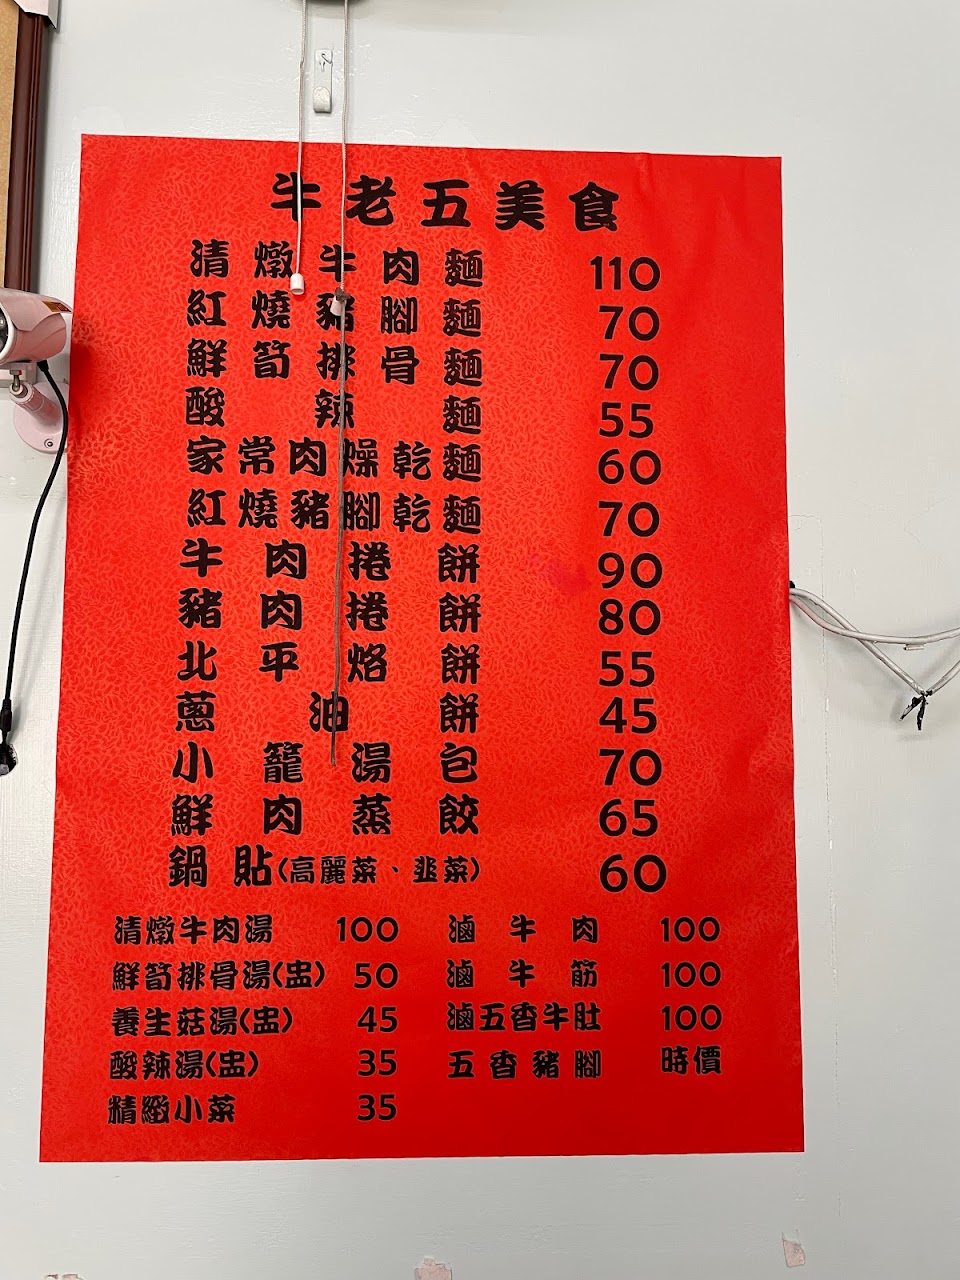 牛老五美食
清燉牛肉麵 110
紅燒豬腳麵 70
鮮筍排骨麵 70
酸辣麵 55
家常肉燥乾麵 60
紅燒豬腳乾麵 70
牛肉捲餅 90
豬肉捲餅 80
北平烙餅 55
蔥油餅 45
小籠湯包 70
鮮肉蒸餃 65
鍋貼(高麗菜、韭菜) 60
清燉牛肉湯 100
鮮筍排骨湯(盅) 50
養生菇湯(盅) 45
酸辣湯(盅) 35
精緻小菜 35
滷牛肉 100
滷牛筋 100
滷五香牛肚 100
五香豬腳 時價